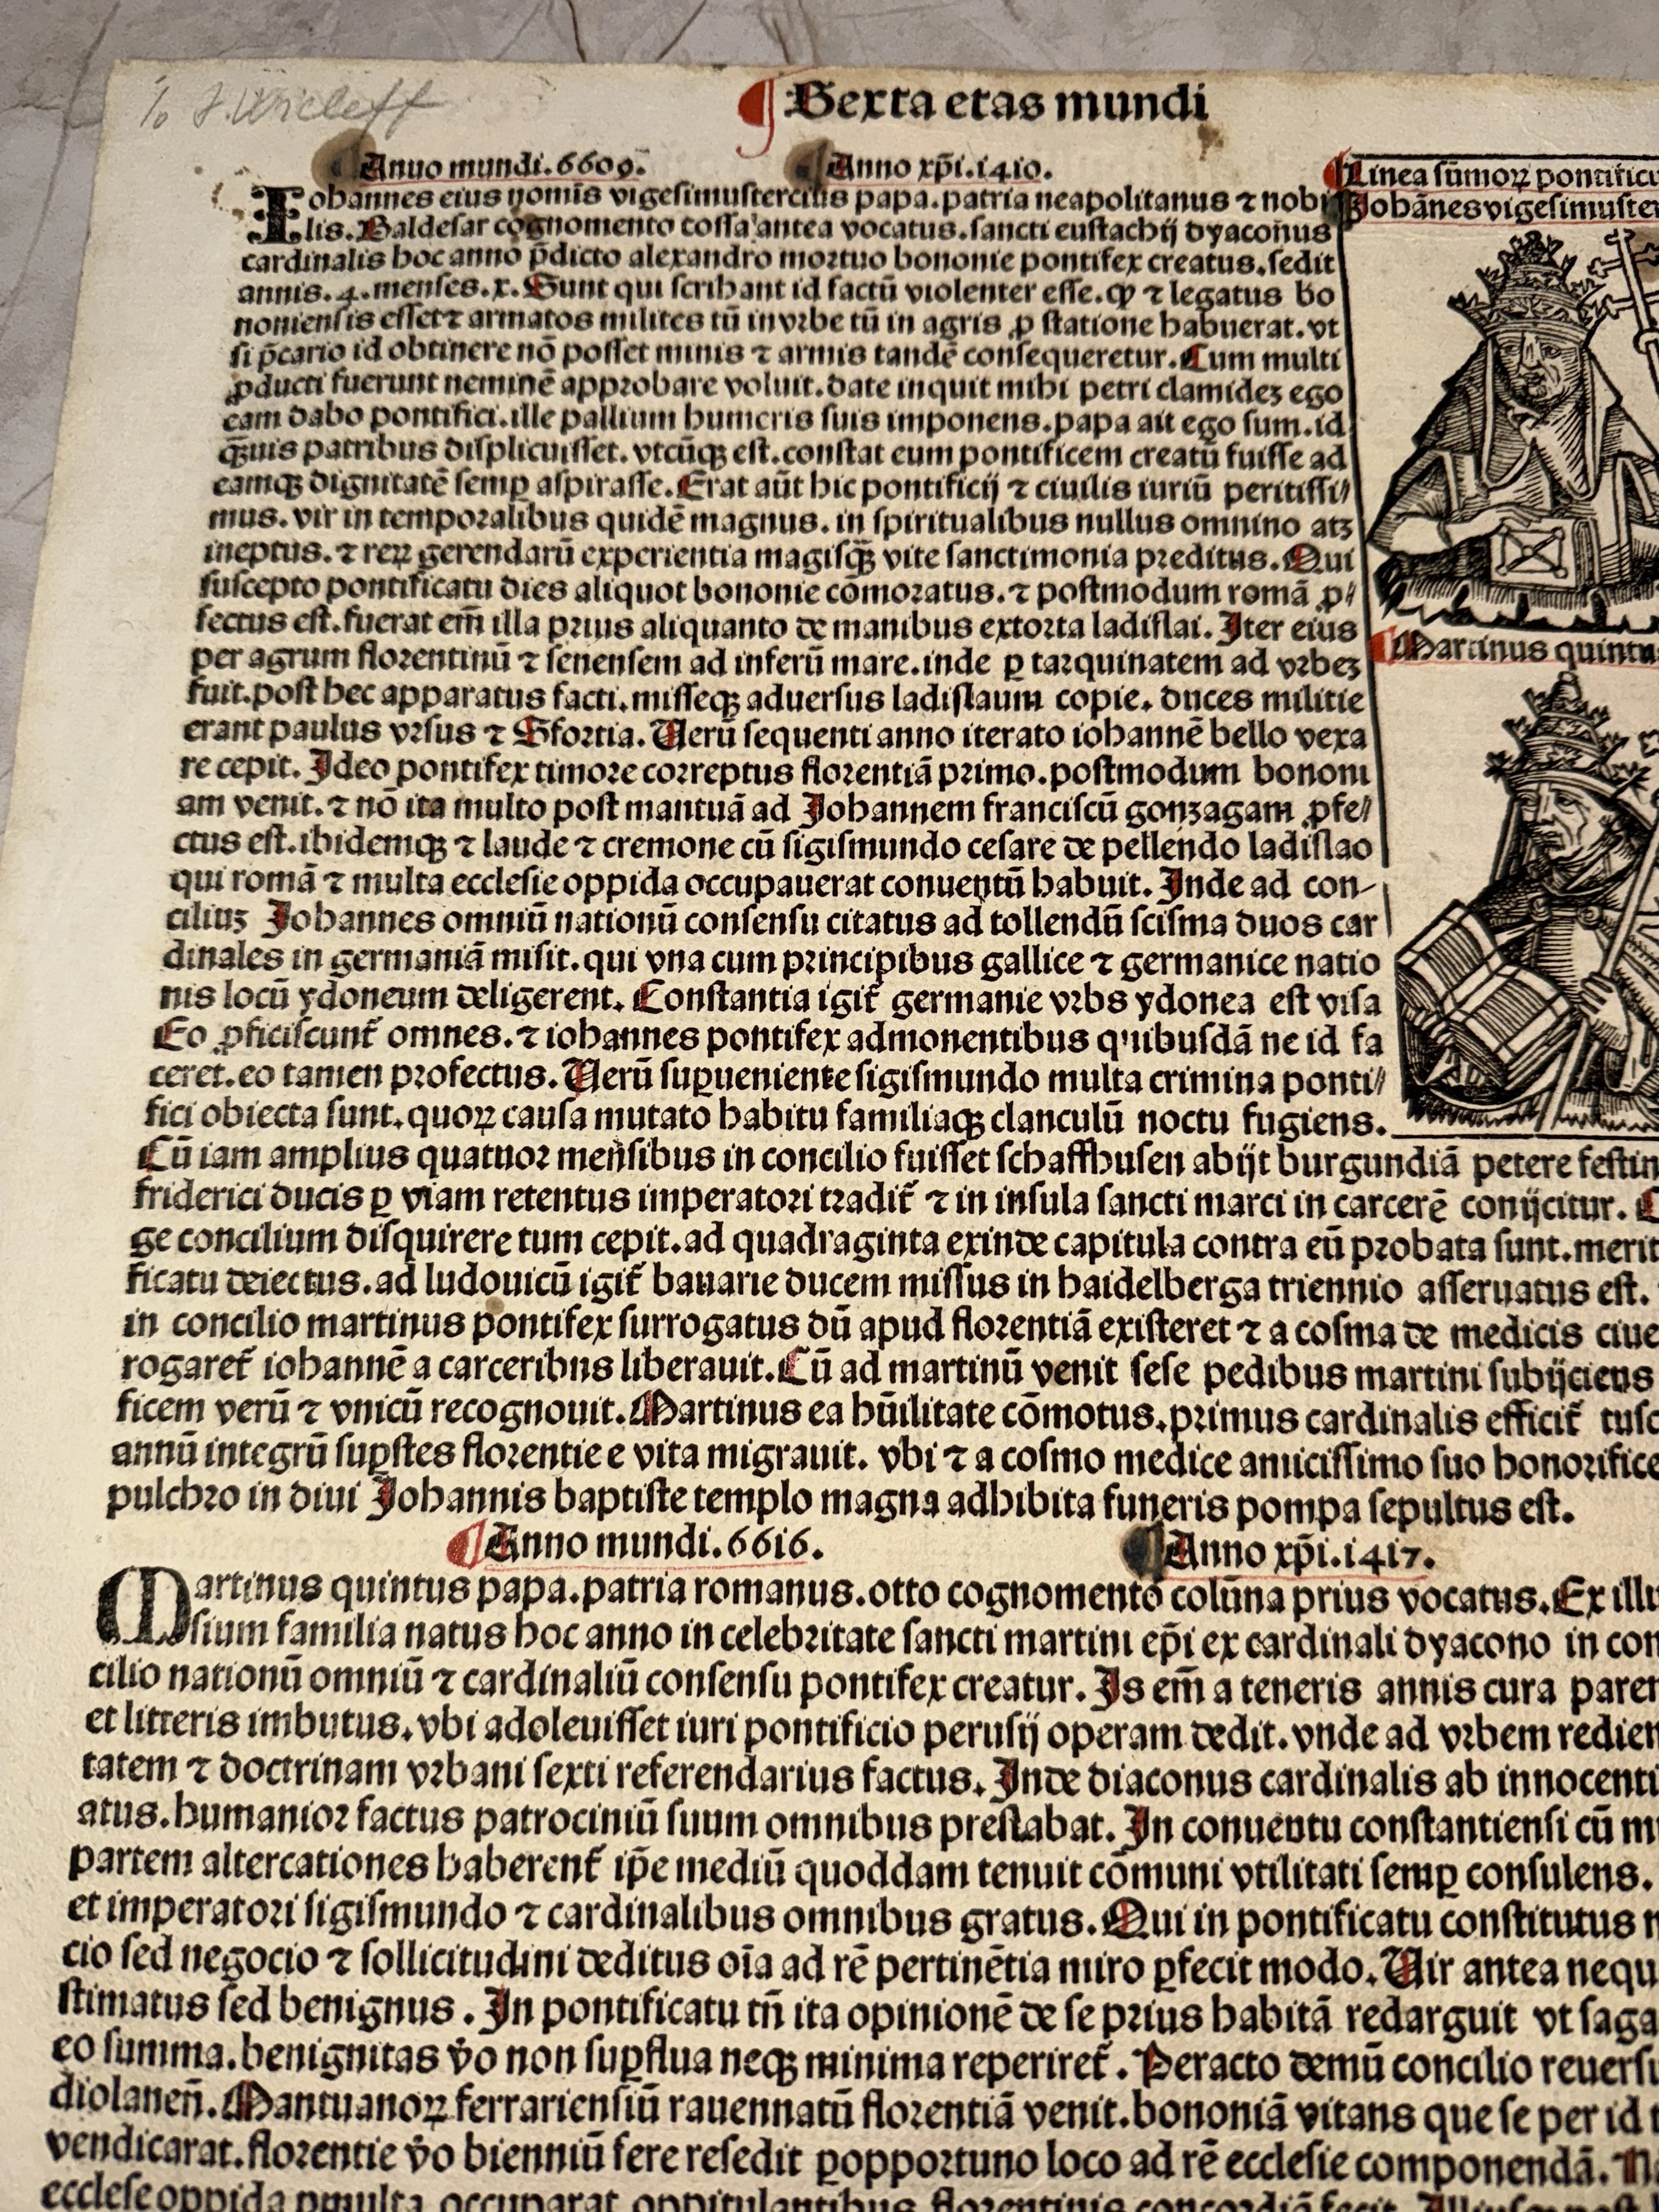 J. Wicleff
Sexta etas mundi
Anno mundi.6609.
Anno xp̄i.1410.
Linea sūmoꝝ pontificu
Johānes vigesimuster
Iohannes eius nomīs vigesimustercius papa.patria neapolitanus ⁊ nobi
lis.Baldesar cognomento cossa antea vocatus.sancti eustachij dyaconus
cardinalis hoc anno p̄dicto alexandro mortuo bononie pontifex creatus.sedit
annis.4.menses.x.Sunt qui scribant id factū violenter esse.ꝙ ⁊ legatus bo
noniensis esset⁊ armatos milites tū in vrbe tū in agris ꝓ statione habuerat.vt
si p̄cario id obtinere nō posset minis ⁊ armis tandē consequeretur.Cum multi
ꝓducti fuerunt neminē approbare voluit.date inquit mihi petri clamidez ego
eam dabo pontifici.ille pallium humeris suis imponens.papa ait ego sum.id
q̄uis patribus displicuisset.vtcūqꝫ est.constat eum pontificem creatū fuisse ad
eamqꝫ dignitatē semꝑ aspirasse.Erat aūt hic pontificij ⁊ ciuilis iuriū peritissi//
mus.vir in temporalibus quidē magnus.in spiritualibus nullus omnino atz
ineptus.⁊ reꝝ gerendarū experientia magisq̄ꝫ vite sanctimonia preditus.Qui
suscepto pontificatu dies aliquot bononie cōmoratus.⁊ postmodum romā ꝓ/
fectus est.fuerat em̄ illa prius aliquanto de manibus extorta ladislai.Iter eius
per agrum florentinū ⁊ senensem ad inferū mare.inde ꝑ tarquinatem ad vrbez
fuit.post hec apparatus facti.misseqꝫ aduersus ladislaum copie.duces militie
erant paulus vrsus ⁊ Sfortia.Uerū sequenti anno iterato iohannē bello vexa
re cepit.Ideo pontifex timore correptus florentiā primo.postmodum bononi
am venit.⁊ nō ita multo post mantuā ad Johannem franciscū gonzagam ꝓfe/
ctus est.ibidemqꝫ ⁊ laude ⁊ cremone cū sigismundo cesare de pellendo ladislao
qui romā ⁊ multa ecclesie oppida occupauerat conuentū habuit.Inde ad con-
ciliuz Johannes omniū nationū consensu citatus ad tollendū scisma duos car
dinales in germaniā misit.qui vna cum principibus gallice ⁊ germanice natio
nis locū ydoneum deligerent.Constantia igit̄ germanie vrbs ydonea est visa
Eo ꝓficiscunt̄ omnes.⁊ iohannes pontifex admonentibus quibusdā ne id fa
ceret.eo tamen profectus.Uerū suꝑueniente sigismundo multa crimina ponti//
fici obiecta sunt.quoꝝ causa mutato habitu familiaqꝫ clanculū noctu fugiens.
Martinus quintu
Cū iam amplius quatuor mensibus in concilio fuisset schaffhusen abijt burgundiā petere festin
friderici ducis ꝑ viam retentus imperatori tradit̄ ⁊ in insula sancti marci in carcerē conijcitur.C
ge concilium disquirere tum cepit.ad quadraginta exinde capitula contra eū probata sunt.merit
ficatu deiectus.ad ludouicū igit̄ bauarie ducem missus in haidelberga triennio asseruatus est.
in concilio martinus pontifex surrogatus dū apud florentiā existeret ⁊ a cosma de medicis ciue
rogaret̄ iohannē a carceribus liberauit.Cū ad martinū venit sese pedibus martini subijciens
ficem verū ⁊ vnicū recognouit.Martinus ea hūilitate cōmotus.primus cardinalis efficit̄ tusc
annū integrū suꝑstes florentie e vita migrauit. vbi ⁊ a cosmo medice amicissimo suo honorifice
pulchro in diui Johannis baptiste templo magna adhibita funeris pompa sepultus est.
Anno mundi.6616.
Anno xp̄i.1417.
Martinus quintus papa.patria romanus.otto cognomento colūna prius vocatus.Ex illu
sium familia natus hoc anno in celebritate sancti martini ep̄i ex cardinali dyacono in con
cilio nationū omniū ⁊ cardinaliū consensu pontifex creatur.Is em̄ a teneris annis cura paren
et litteris imbutus.vbi adoleuisset iuri pontificio perusij operam dedit.vnde ad vrbem redien
tatem ⁊ doctrinam vrbani sexti referendarius factus.Inde diaconus cardinalis ab innocenti
atus.humanior factus patrociniū suum omnibus prestabat.In conuentu constantiensi cū m
partem altercationes haberent̄ ip̄e mediū quoddam tenuit cōmuni vtilitati semꝑ consulens.
et imperatori sigismundo ⁊ cardinalibus omnibus gratus.Qui in pontificatu constitutus n
cio sed negocio ⁊ sollicitudini deditus oīa ad rē pertinētia miro ꝑfecit modo.Uir antea nequ
stimatus sed benignus.In pontificatu tn̄ ita opinionē de se prius habitā redarguit vt saga
eo summa.benignitas v̄o non suꝑflua neqꝫ minima reperiret̄.Peracto demū concilio reuersu
diolanen̄.Mantuanoꝝ ferrariensiū rauennatū florentiā venit.bononiā vitans que se per id t
vendicarat.florentie v̄o bienniū fere resedit ꝑopportuno loco ad rē ecclesie componendā.N
ecclese oppida pmulta occuparat oppitulantibus florentinis concordiā fecit.